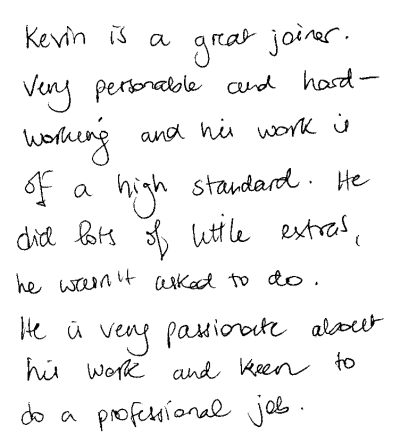 Kevin is a great joiner.
Very personable and hard-
working and his work is
of a high standard. He
did lots of little extras,
he wasn't asked to do.
He is very passionate about
his work and keen to
do a professional job.